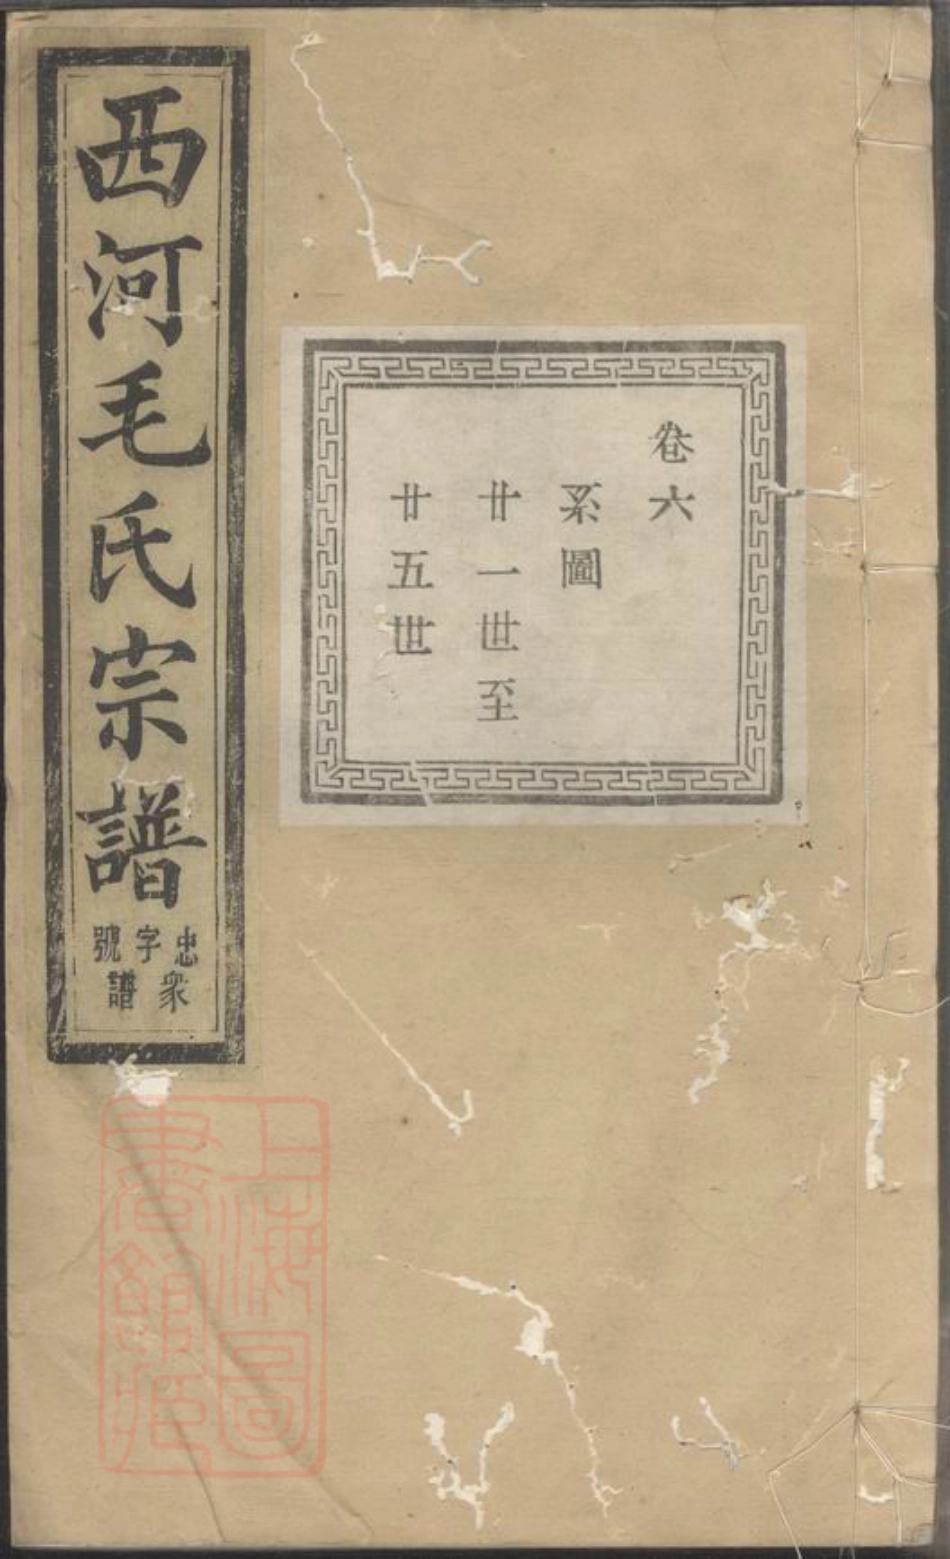 西河毛氏宗譜
忠字號
衆譜
卷六
系圖
廿一世至
廿五世
上海圖
書館藏